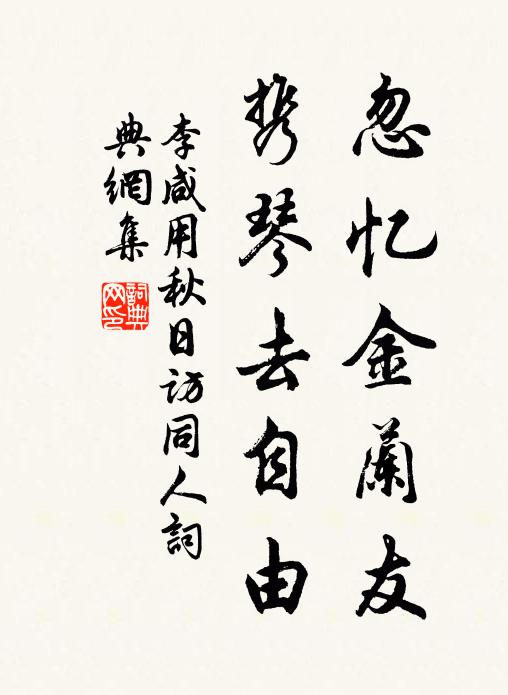 忽忆金蘭友
携琴去自由
李咸用秋日訪同人詞
典網集
詞典
网印